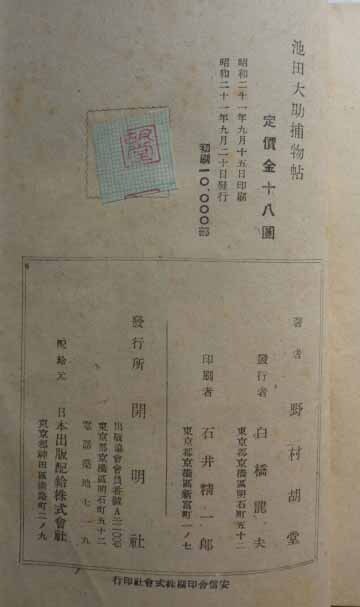 池田大助捕物帖
定價金十八圓
昭和二十一年九月十五日印刷
昭和二十一年九月二十日發行
初刷一〇,〇〇〇部
著者 野村胡堂
發行者 白橋龍夫
東京都京橋區明石町五十二
印刷者 石井精一郎
東京都京橋區新富町一ノ七
發行所 開明社
東京都京橋區明石町五十二
電話築地七一九
配給元 日本出版配給株式會社
東京都神田區淡路町二ノ九
安信舍印刷株式會社印行